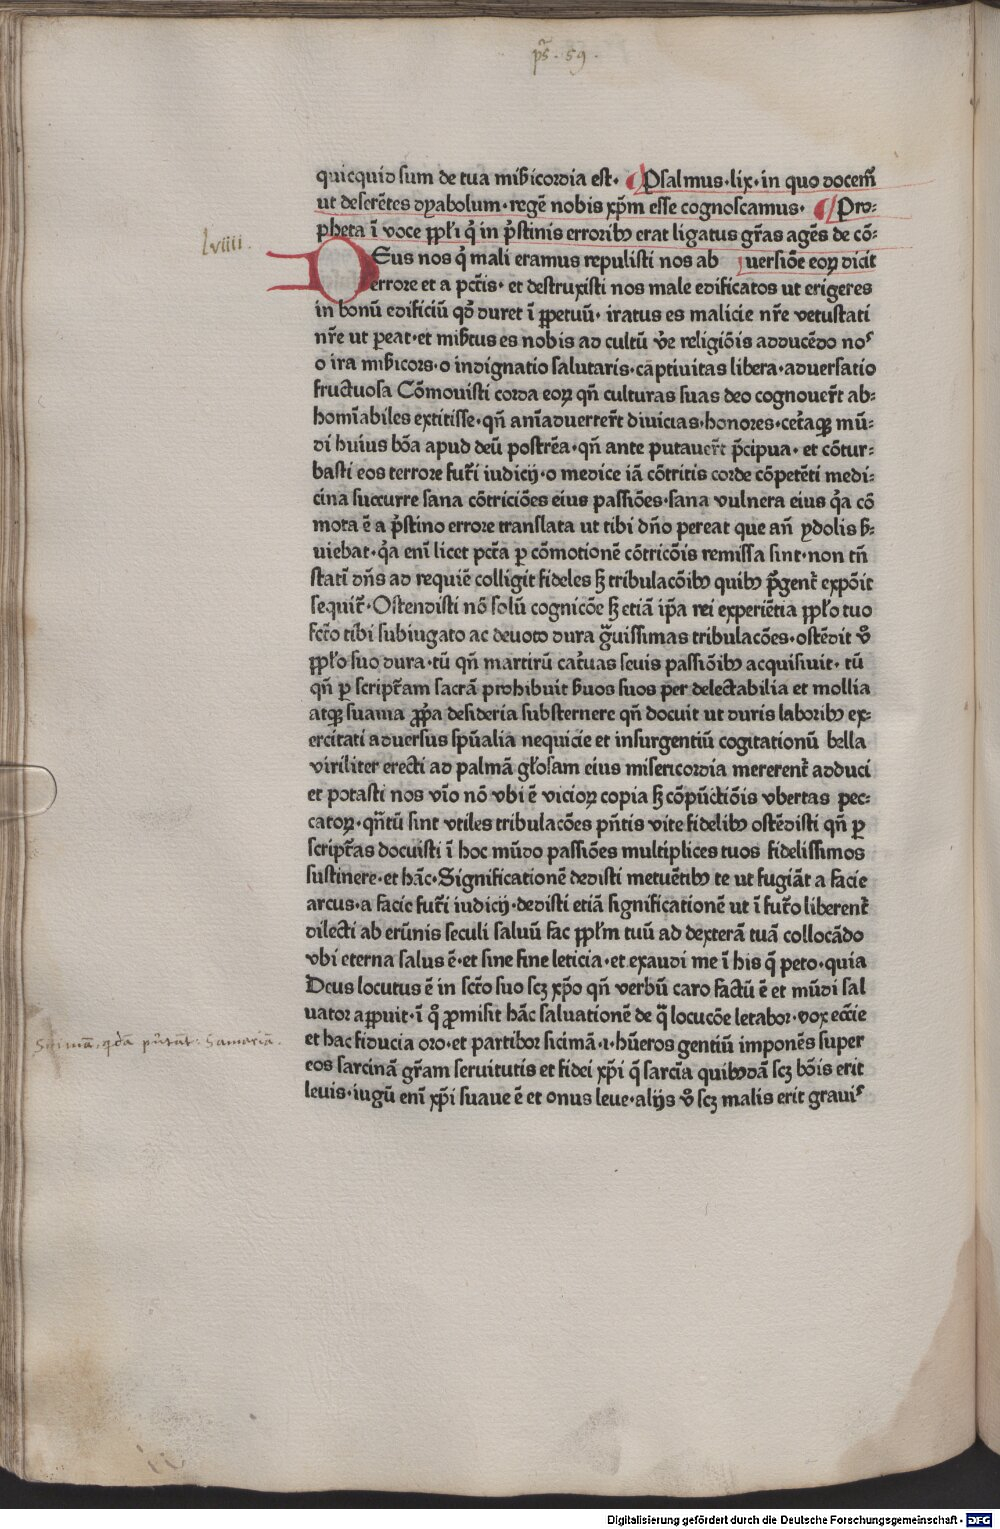 ps . 59 .
quicquid sum de tua mībicordia est· Psalmus·lix·in quo docem̄
ut deserētes dyabolum·regē nobis xp̄m esse cognoscamus· Pro⸗
pheta ī voce pp̄li q̇ in p̄stinis erroribꝫ erat ligatus gr̄as agēs de cō⸗
lviiii.
DEus nos q̇ mali eramus repulisti nos ab uersiōe eoꝝ dicit
errore et a pctīs· et destruxisti nos male edificatos ut erigeres
in bonū edificiū qd̓ duret ī ꝑpetuū· iratus es malicie nr̄e vetustati
nr̄e ut pereat·et mīb̄tus es nobis ad cultū v̓e religiōis adducēdo noˢ
o ira mīb̄icors·o indignatio salutaris·cāptiuitas libera·aduersatio
fructuosa Cōmouisti corda eoꝝ qn̄ culturas suas deo cognouer̄t ab⸗
homīabiles extitisse·qn̄ anīaduerter̄t diuicias·honores·cet̄aqꝫ mū⸗
di huius bōa apud deū postrēa·qn̄ ante putauer̄t p̄cipua· et cōtur⸗
basti eos terrore futr̄i iudicij·o medice iā cōtritis corde cōpetēti medi⸗
cina succurre sana cōtriciōes eius passiōes·sana vulnera eius q̇a cō
mota ē a p̄stino errore translata ut tibi dn̄o pereat que an̄ ydolis b̄⸗
uiebat·q̇a enī licet pctā p cōmotionē cōtricōis remissa sint·non tn̄
statī dn̄s ad requiē colligit fideles sꝫ tribulacōibꝫ quibꝫ p̄gent̄ expōit
sequit̄·Ostendisti nō solū cognicōe sꝫ etiā ip̄a rei experiētia pp̄lo tuo
sctō tibi subiugato ac deuoto dura g̃uissimas tribulacōes·ostēdit v̓o
pp̄lo suo dura·tū qn̄ martirū cat̄uas seuis passiōibꝫ acquisiuit· tū
qn̄ p script̄am sacrā prohibuit b̄uos suos per delectabilia et mollia
atqꝫ suauia pp̄a desideria substernere qn̄ docuit ut duris laboribꝫ ex⸗
ercitati aduersus sp̄ualia nequicie et insurgentiū cogitationū bella
viriliter erecti ad palmā gl̄osam eius misericordia mererent̄ adduci
et potasti nos vīo nō vbi ē vicioꝝ copia sꝫ cōpūctiōis vbertas pec⸗
catoꝝ·qn̄tū sint vtiles tribulacōes pn̄tis vite fidelibꝫ ostēdisti qn̄ p
script̄as docuisti ī hoc mūdo passiōes multiplices tuos fidelissimos
sustinere·et hāc·Significationē dedisti metuētibꝫ te ut fugiāt a facie
arcus·a facie futr̄i iudicij·dedisti etiā significationē ut ī futr̄o liberent̄
dilecti ab erūnis seculi saluū fac pp̄lm tuū ad dexterā tuā collocādo
vbi eterna salus ē·et sine fine leticia·et exaudi me ī his q̄ peto·quia
Deus locutus ē in sctō suo scꝫ xp̄o qn̄ verbū caro factū ē et mūdi sal
uator apꝑuit·ī q̊ ꝓmisit hāc saluationē de q̃ locucōe letabor·vox ecc̄ie
Siciman̄ . qdā putant : Samariā .
et hac fiducia oro·et partibor sicimā·ı·hūeros gentiū imponēs super
eos sarcinā gr̄am seruitutis et fidei xp̄i q̄ sarcīa quibꝫdā scꝫ bōis erit
leuis·iugū enī xp̄i suaue ē et onus leue·alijs v̓o scꝫ malis erit grauiˢ
Digitalisierung gefördert durch die Deutsche Forschungsgemeinschaft - DFG